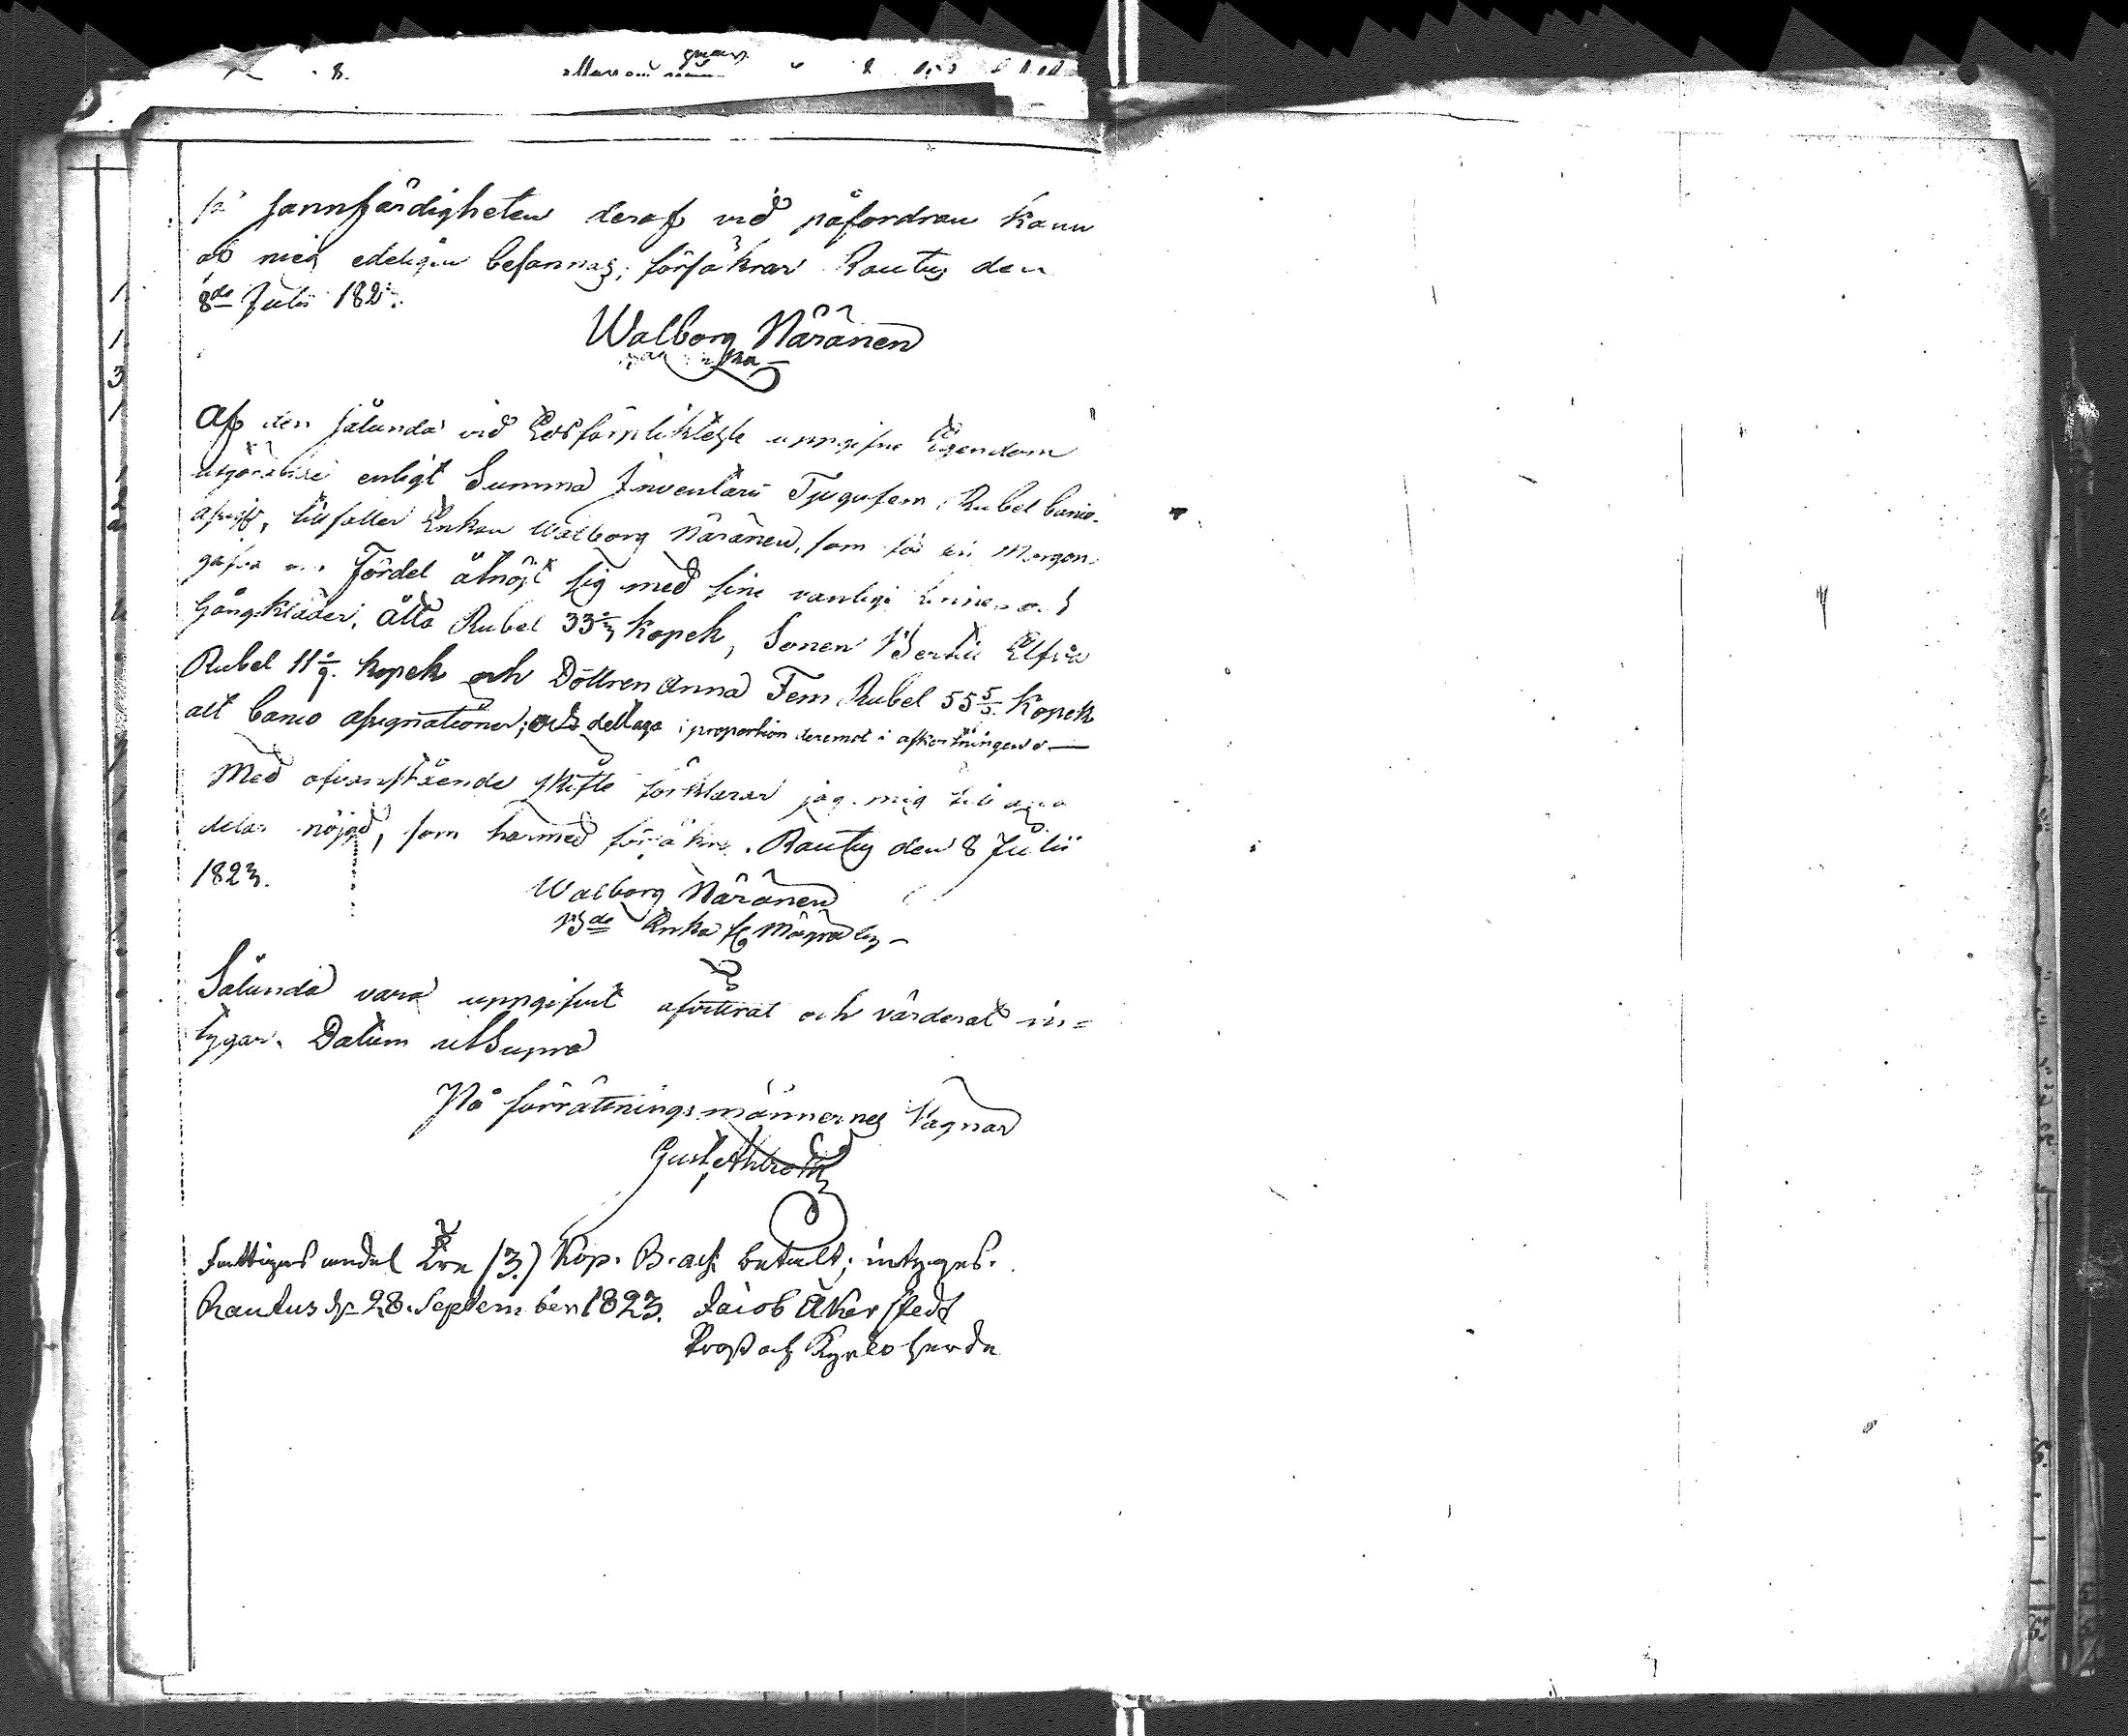 sannfärdigheten deraf vid påfordran kan
af mig edeligen besannas; försäkrar Rautus den
8de Julii 182
Walborg Näränen
Af den sålunda vid Edsförpliktelse uppgifne Egendom
utgörande enligt Summa Inventarii Tjugufem Rubel banco
assig, tillfaller Enkan Walborg Näränen, som för sin Morgon-
gåfva Fördel åtnöjt sig med sine vanlige linne och
Gångkläder, Åtta Rubel 33 1/3 Kopek, Sonen Bertil Elfva
Rubel 11 1/9 kopek och Dottren Anna Fem Rubel 55 5/9 Kopek
alt banco assignationer; och deltaga i proportion deremot i afkortningen
Med ofvanstående skifte förklarar jag mig till alla
delar nöjd, som härmed försäkras. Rautus den 8 Julii
1823.
Walborg Näränen
Enka
Sålunda vara uppgifvit och värderat in-
tygar. Datum utSupra
På förrättningsmännernes Vägnar
Gust. Ahlroth
Fattiges andel Tre (3.) Kop. B. ass. betalt; intygas.
Rautus d. 28. September 1823. Jacob Åkerstedt
Prost och Kyrkoherde